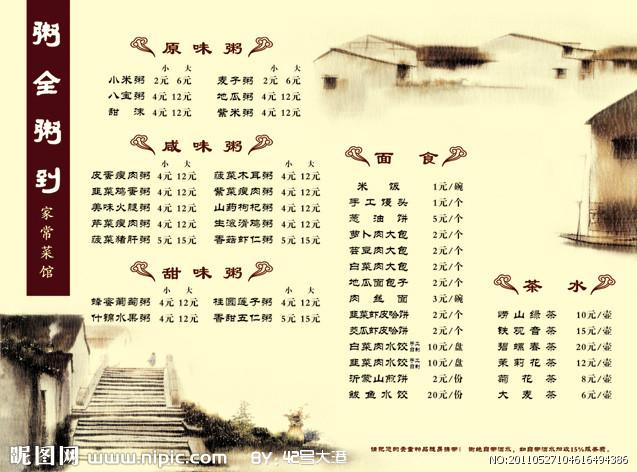 粥全粥到
家常菜馆
原味粥
小 大 小 大
小米粥 2元 6元 麦子粥 2元 6元
八宝粥 4元 12元 地瓜粥 4元 12元
甜沫 4元 12元 紫米粥 4元 12元
咸味粥
小 大 小 大
皮蛋瘦肉粥 4元 12元 菠菜木耳粥 4元 12元
韭菜鸡蛋粥 4元 12元 紫菜瘦肉粥 4元 12元
美味火腿粥 4元 12元 山药枸杞粥 4元 12元
芹菜瘦肉粥 4元 12元 生滚滑鸡粥 4元 12元
菠菜猪肝粥 5元 15元 香菇虾仁粥 5元 15元
甜味粥
小 大 小 大
蜂蜜葡萄粥 4元 12元 桂圆莲子粥 4元 12元
什锦水果粥 4元 12元 香甜五仁粥 5元 15元
面食
米饭 1元/碗
手工馒头 1元/个
葱油饼 5元/个
萝卜肉大包 2元/个
芸豆肉大包 2元/个
白菜肉大包 2元/个
地瓜面包子 2元/个
肉丝面 3元/碗
韭菜虾皮哈饼 2元/个
茭瓜虾皮哈饼 2元/个
白菜肉水饺 10元/盘
韭菜肉水饺 10元/盘
沂蒙山煎饼 2元/份
鲅鱼水饺 20元/份
茶水
崂山绿茶 10元/壶
铁观音茶 15元/壶
碧螺春茶 20元/壶
茉莉花茶 12元/壶
菊花茶 8元/壶
大麦茶 6元/壶
请把您的贵重物品随身携带! 谢绝自带酒水,如自带酒水加收15%服务费。
昵图网 www.nipic.com BY: 42号大港
NO:20110527104616494386